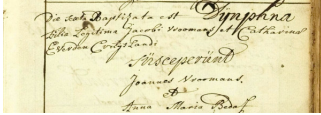 Die sexta Baptizata est Dijmphna
filia Legitima Jacobi Voormans et Catharina
Everden Conjugandi
Susceperunt
Joannes Voormans.
et
Anna Maria Bedaf